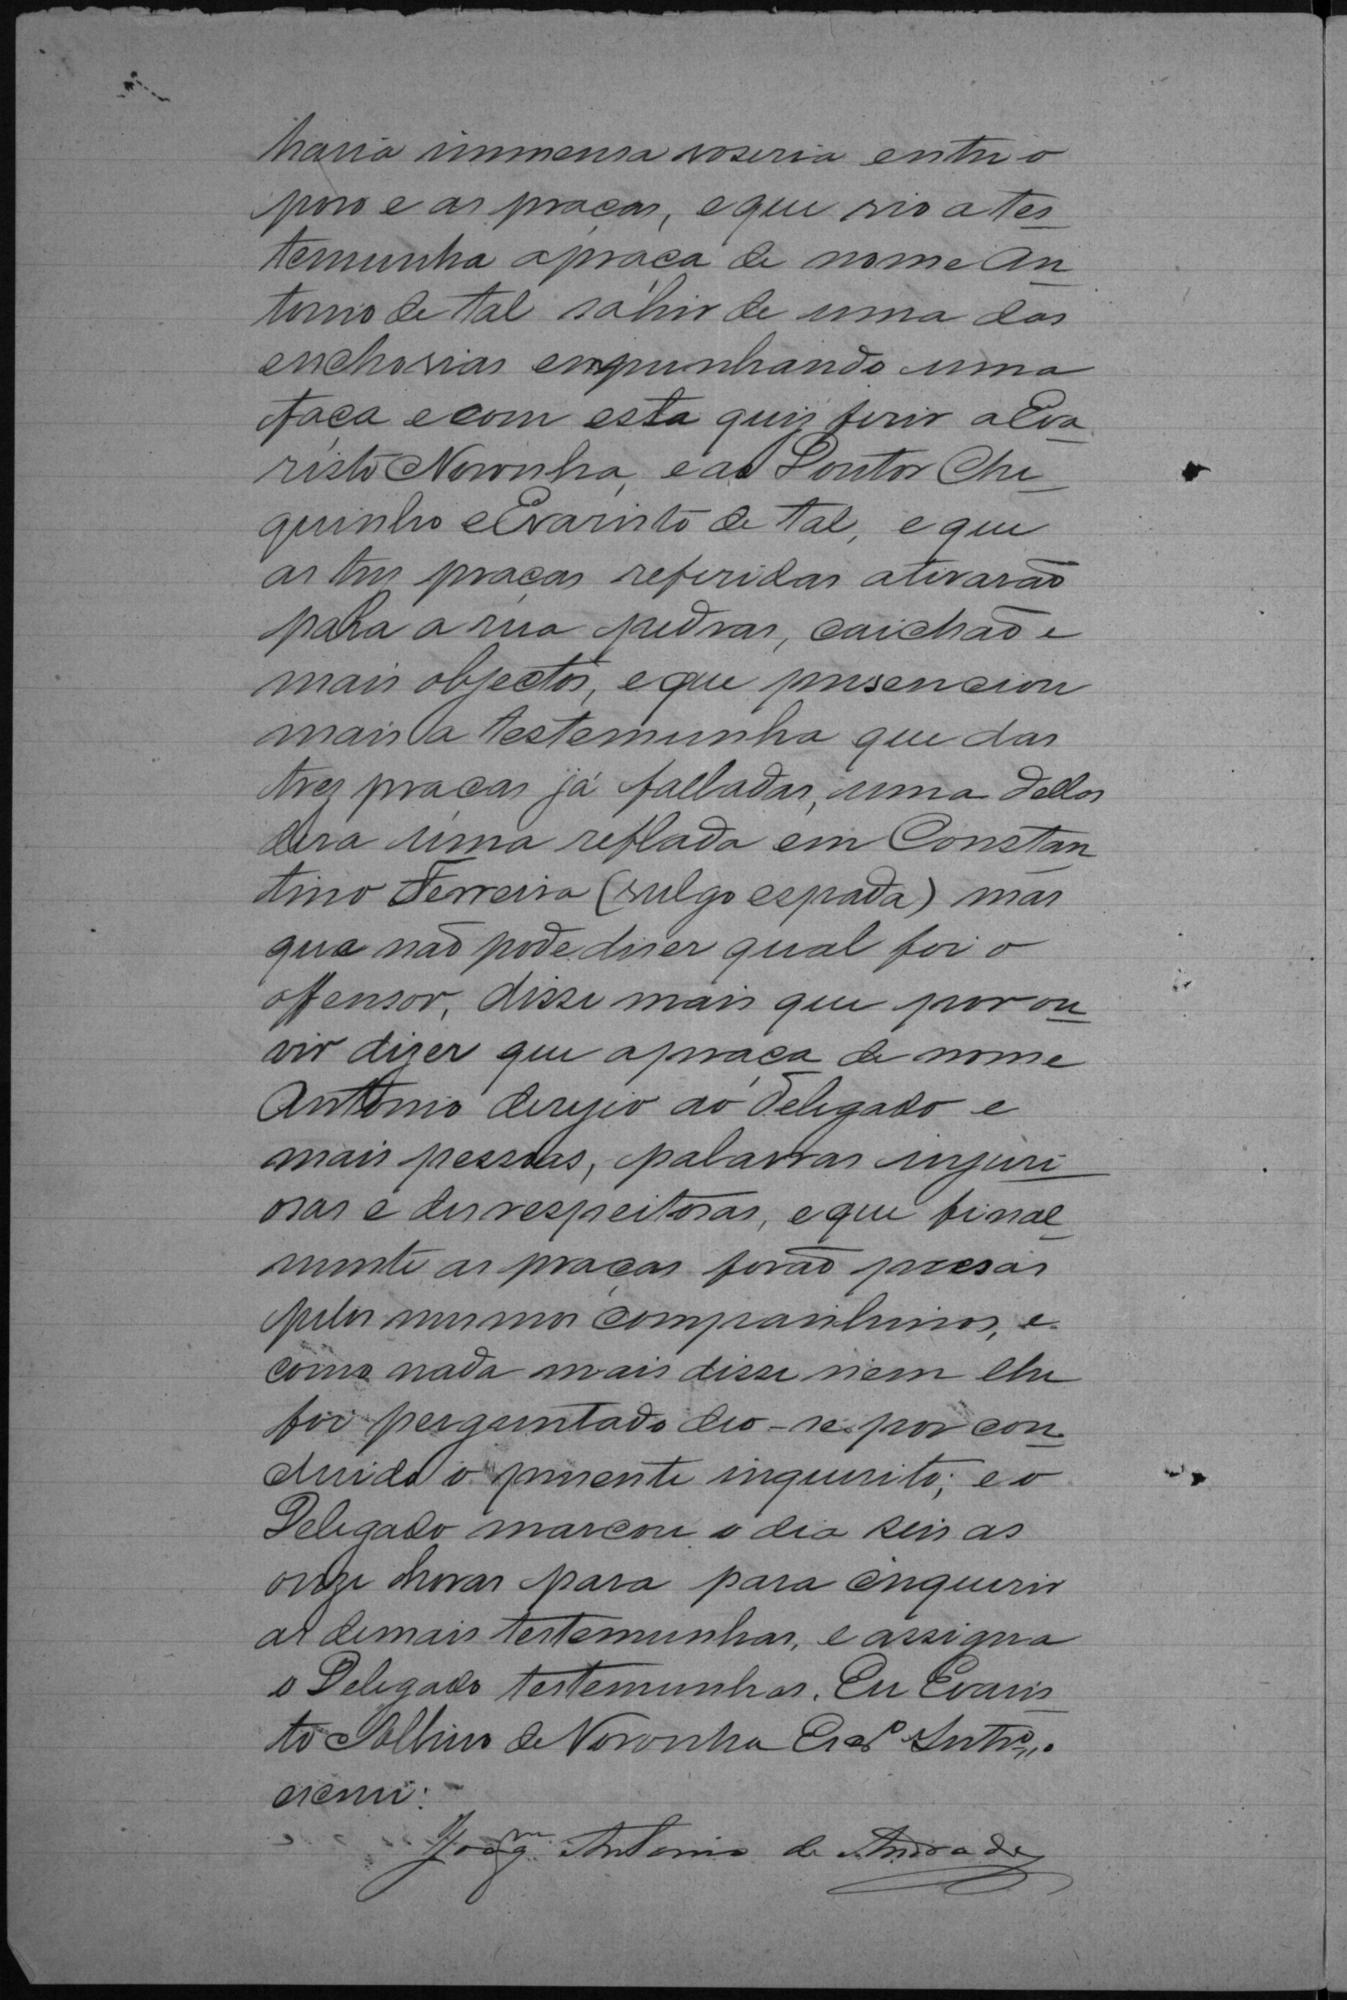 havia immensa voseria entre o
povo e as praças, e que vio a tes
temunha a praça de nome An
tonio de tal sahir de uma das
enchovias empunhando uma
faca e com esta quiz ferir a Eva
risto Noronha, e ao Doutor Chi
quinho e Evaristo de tal, e que
as tres praças referidas atirarão
para a rua pedras, caichão e
mais objectos, e que presenciou
mais a testemunha que das
trez praças já falladas, uma dellas
dera uma reflada em Constan
tino Ferreira (vulgo espada) mas
que não pode diser qual foi o
offensor, disse mais que por ou
vir dizer que a praça de nome
Antonio derigio ao Delegado e
mais pessoas, palavras injuri
osas e desrespeitosas, e que final
mente as praças forão presas
pelos mesmos companheiros, e
como nada mais disse nem lhe
foi perguntado deo-se por con
cluido o presente inquerito; e o
Delegado marcou o dia seis as
onze horas para para inquerir
as demais testemunhas, e assigna
o Delegado testemunhas. Eu Evaris
to de Noronha Esc.º Int.º
escrevi.
Joaq.m Antonio de Andrade